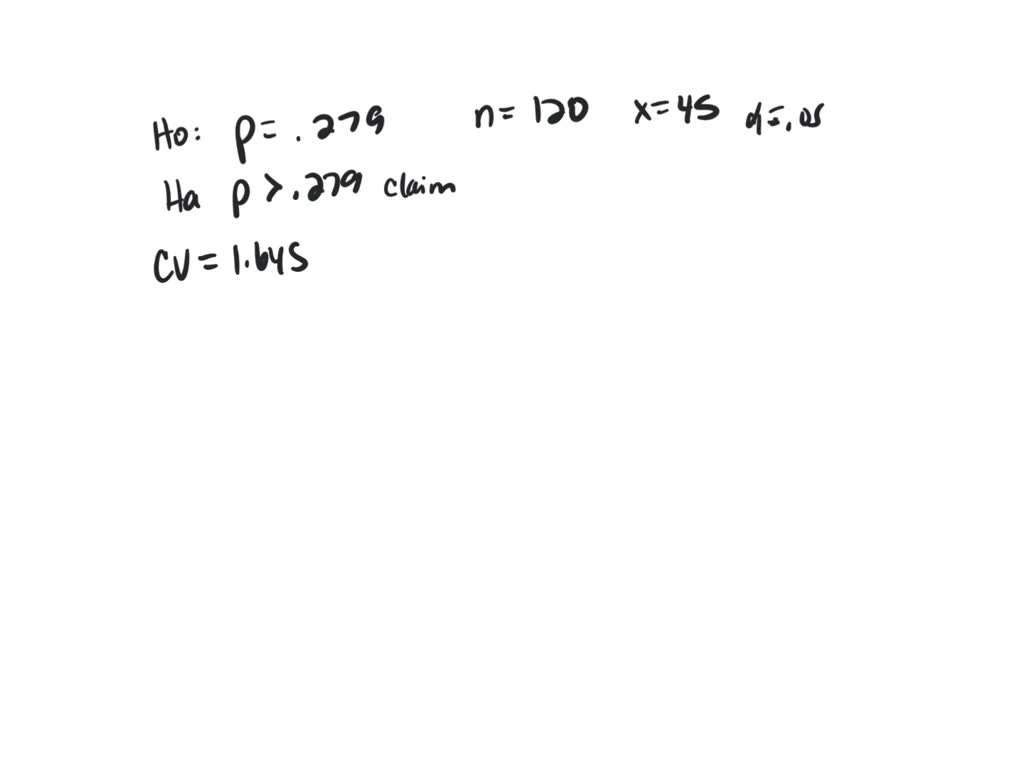 Ho: p = .279 n = 120 x = 45 α = .05
Ha p > .279 claim
CV = 1.645